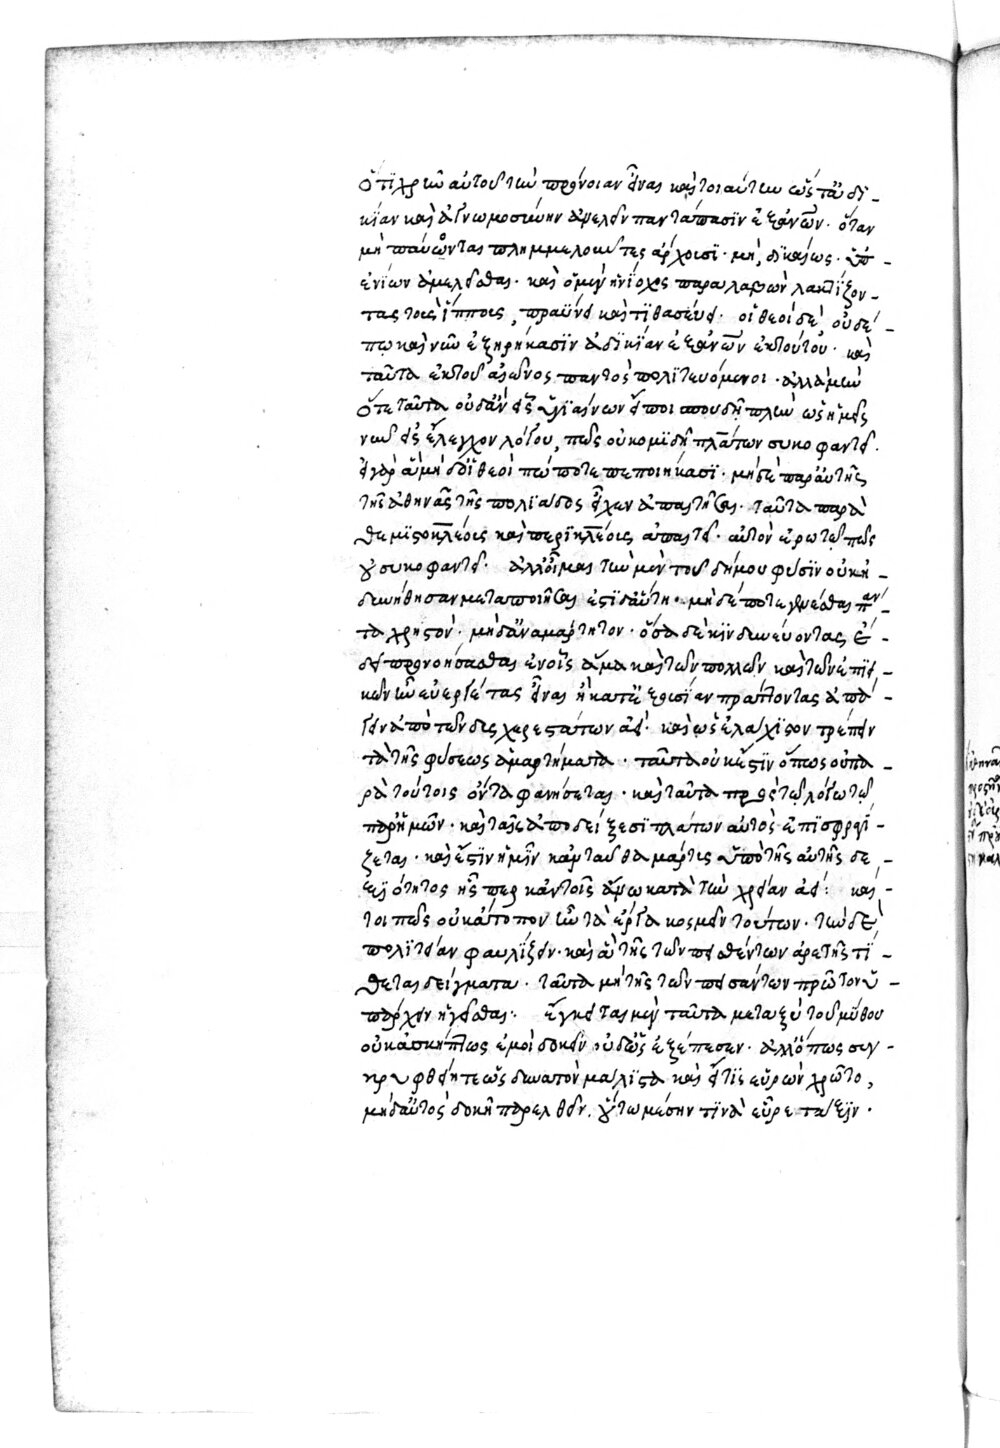 ὅτι χρεὼν αὐτοῦ τὴν πρόνοιαν εἶναι καὶ τοιαύτην ὡς τἀδι-
κίαν καὶ ἀγνωμοσύνην ἀμελεῖν παντάπασιν ἐξ ἀνων. ὅταν
μὴ παύωνται πλημμελοῦντες ἄρχουσι. μὴ δικαίως. ὑπ
ἐνίων ἀμελεῖσθαι. καὶ ὁ μὲν ἡνίοχος παραλαβὼν λακτίζον-
τας τοὺς ἵππους, πραΰνει καὶ τιθασεύει. οἱ θεοὶ δὲ οὐδέ-
πω καὶ νῦν ἐξῃρήκασιν ἀδικίαν ἐξ ἀνων ἐκ τούτου. καὶ
ταῦτα ἐκ τοῦ αἰῶνος παντὸς πολιτευόμενοι. ἀλλὰ μὴν
ὅτε ταῦτα οὐδ' ἂν εἷς ὑγιαίνων εἴποι σπουδῇ πλὴν ὡς ἡμεῖς
νῦν εἰς ἔλεγχον λόγου, πῶς οὐ κομιδῇ πλάτων συκοφαντεῖ.
εἰ γὰρ ἃ μὴ δ' οἱ θεοὶ πώποτε πεποιήκασι. μηδὲ παρ' αὐτῆς
τῆς ἀθηνᾶς τῆς πολιάδος ἔχειν ἀπαιτῆσαι. ταῦτα παρὰ
θεμιστοκλέους καὶ περικλέους ἀπαιτεῖ. αὐτὸν ἐρωτῶ πῶς
οὐ συκοφαντεῖ. ἀλλ' οἶμαι τὴν μὲν τοῦ δήμου φύσιν οὐκ ἠ-
δυνήθησαν μεταποιῆσαι ἐστὶ δ' αὕτη. μηδέποτε γενέσθαι πάν-
τα χρηστόν. μηδ' ἀναμάρτητον. ὅσα δὲ κινδυνεύοντας ἔ-
δει προνοήσασθαι ἐν οἷς ἅμα καὶ τῶν πολλῶν καὶ τῶν ἐπιει-
κῶν ἦν εὐεργέτας εἶναι ἢ κατ' ἐξουσίαν πράττοντας ἀπά-
γειν ἀπὸ τῶν δυσχερεστάτων ἀεί. καὶ ὡς ἐλάχιστον τρέπειν
τὰ τῆς φύσεως ἁμαρτήματα. ταῦτα οὐκ ἔστιν ὅπως οὐ πα-
ρὰ τούτοις ὄντα φανήσεται. καὶ ταῦτα πρὸς τῷ λόγῳ τῷ
παρ' ἡμῶν. καὶ ταῖς ἀποδείξεσι πλάτων αὐτὸς ἐπισφραγί-
ζεται. καὶ ἔστιν ἡμῖν κἀνταῦθα μάρτυς ὑπὸ τῆς αὐτῆς δε-
ξιότητος ἧς περ κἀν τοῖς ἄνω κατὰ τὴν χρείαν ἀεί. καί-
τοι πῶς οὐκ ἄτοπον ἦν τὰ ἔργα κοσμεῖν τούτων. τὴν δὲ
πολιτείαν φαυλίζειν. καὶ ἃ τῆς τῶν πεισθέντων ἀρετῆς τί-
θεται δείγματα. ταῦτα μὴ τῆς τῶν πεισάντων πρῶτον ὑ-
πάρχειν ἡγεῖσθαι. ἔγκειται μὲν ταῦτα μεταξὺ τοῦ μύθου
οὐκ ἀσκήπτως ἐμοὶ δοκεῖν οὐδ' ὡς ἐξέπεσεν. ἀλλ' ὅπως συγ-
κρυφθείη τε ὡς δυνατὸν μάλιστα καὶ εἴ τις εὑρὼν χρῷτο,
μηδ' αὐτὸς δοκῇ παρελθεῖν. οὕτω μέσην τινὰ εὗρε τάξιν.